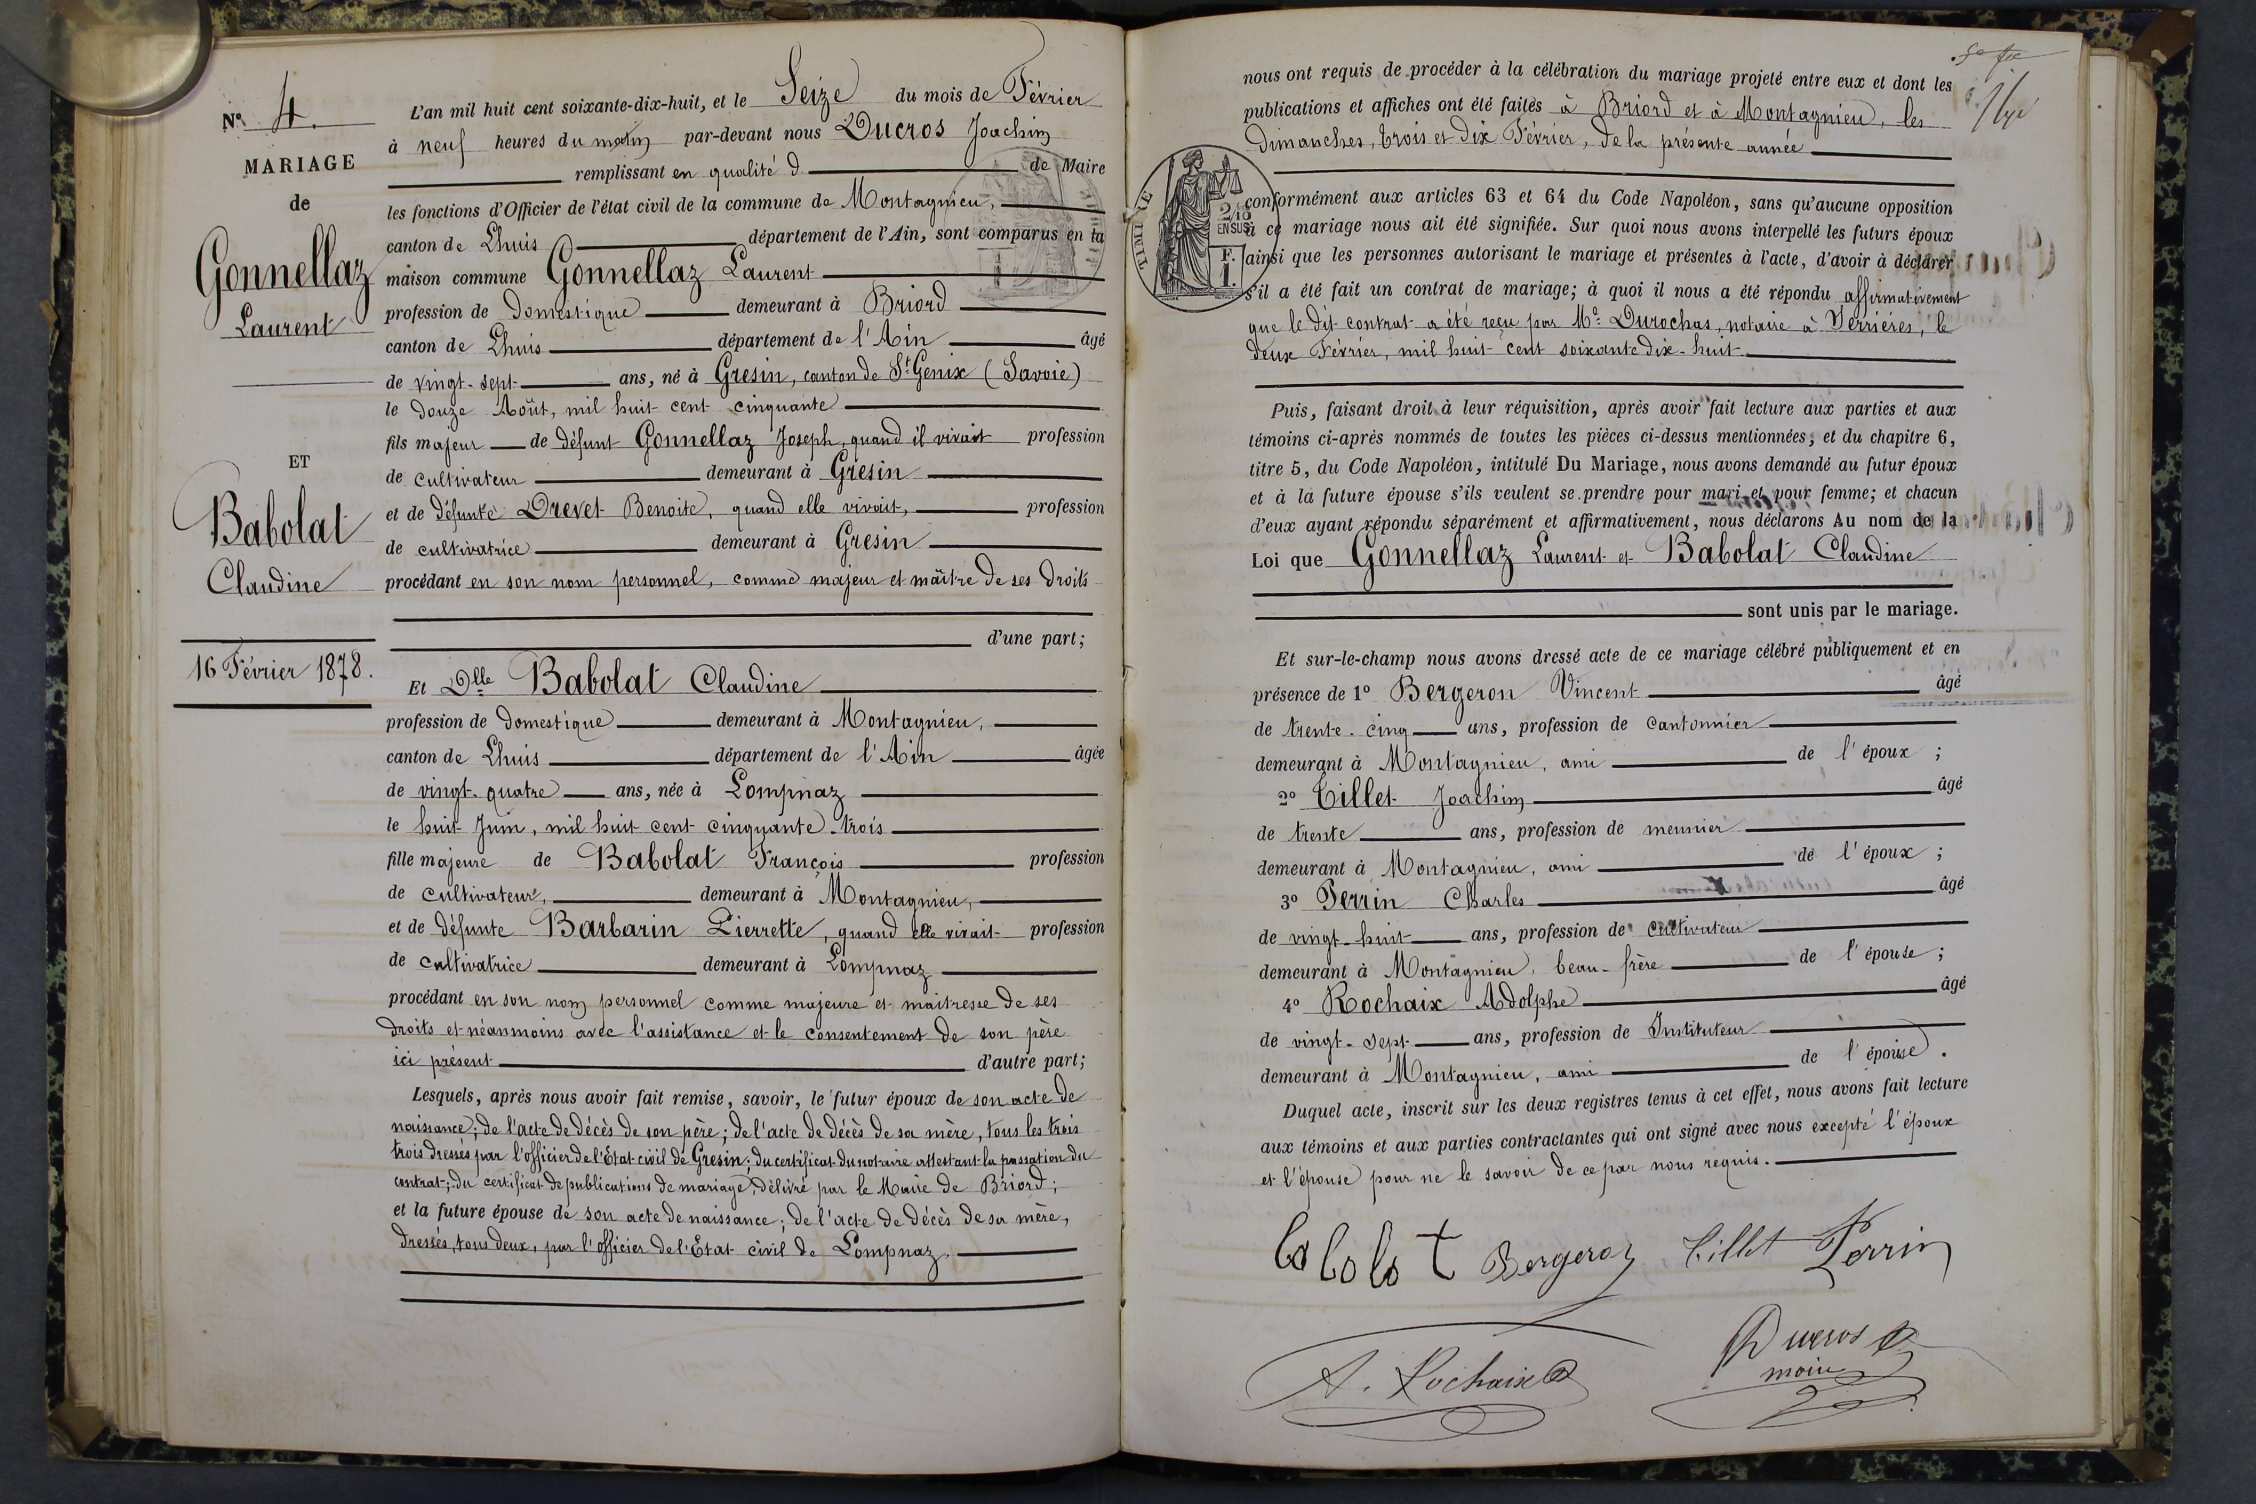 N° 4.
MARIAGE
de
Gonnellaz
Laurent
ET
Babolat
Claudine
16 Février 1878.
L'an mil huit cent soixante-dix-huit, et le Seize du mois de Février
à neuf heures du matin par-devant nous Ducros Joachim
remplissant en qualité d de Maire
les fonctions d'Officier de l'état civil de la commune de Montagnieu,
canton de Lhuis département de l'Ain, sont comparus en la
maison commune Gonnellaz Laurent
profession de domestique demeurant à Briord
canton de Lhuis département de l'Ain âgé
de vingt-sept ans, né à Gresin, canton de St Genix (Savoie)
le douze Août, mil huit cent cinquante
fils majeur de défunt Gonnellaz Joseph, quand il vivait profession
de cultivateur demeurant à Gresin
et de défunte Drevet Benoite, quand elle vivait, profession
de cultivatrice demeurant à Gresin
procédant en son nom personnel, comme majeur et maître de ses droits
d'une part;
Et Dlle Babolat Claudine
profession de domestique demeurant à Montagnieu,
canton de Lhuis département de l'Ain âgée
de vingt-quatre ans, née à Lompnaz
le huit Juin, mil huit cent cinquante-trois
fille majeure de Babolat François profession
de cultivateur, demeurant à Montagnieu,
et de défunte Barbarin Pierrette, quand elle vivait profession
de cultivatrice demeurant à Lompnaz
procédant en son nom personnel comme majeure et maitresse de ses
droits et néanmoins avec l'assistance et le consentement de son père
ici présent d'autre part;
Lesquels, après nous avoir fait remise, savoir, le futur époux de son acte de
naissance; de l'acte de décès de son père; de l'acte de décès de sa mère, tous les trois
trois dressés par l'officier de l'État civil de Gresin; du certificat du notaire attestant la passation du
contrat; du certificat de publications de mariage, délivré par le Maire de Briord;
et la future épouse de son acte de naissance; de l'acte de décès de sa mère,
dressés, tous deux, par l'officier de l'État civil de Lompnaz.
nous ont requis de procéder à la célébration du mariage projeté entre eux et dont les
publications et affiches ont été faites à Briord et à Montagnieu, les
Dimanches, trois et dix Février, de la présente année
TIMBRE
2/10
EN SUS
F.
1.
conformément aux articles 63 et 64 du Code Napoléon, sans qu'aucune opposition
à ce mariage nous ait été signifiée. Sur quoi nous avons interpellé les futurs époux
ainsi que les personnes autorisant le mariage et présentes à l'acte, d'avoir à déclarer
s'il a été fait un contrat de mariage; à quoi il nous a été répondu affirmativement
que le dit contrat a été reçu par Me Durochas, notaire à Serrières, le
deux Février, mil huit cent soixante dix-huit
Puis, faisant droit à leur réquisition, après avoir fait lecture aux parties et aux
témoins ci-après nommés de toutes les pièces ci-dessus mentionnées, et du chapitre 6,
titre 5, du Code Napoléon, intitulé Du Mariage, nous avons demandé au futur époux
et à la future épouse s'ils veulent se prendre pour mari et pour femme; et chacun
d'eux ayant répondu séparément et affirmativement, nous déclarons Au nom de la
Loi que Gonnellaz Laurent et Babolat Claudine
sont unis par le mariage.
Et sur-le-champ nous avons dressé acte de ce mariage célébré publiquement et en
présence de 1° Bergeron Vincent âgé
de trente-cinq ans, profession de cantonnier
demeurant à Montagnieu, ami de l'époux ;
2° Tillet Joachim âgé
de trente ans, profession de meunier
demeurant à Montagnieu, ami de l'époux ;
3° Perrin Charles âgé
de vingt-huit ans, profession de cultivateur
demeurant à Montagnieu, beau-frère de l'épouse ;
4° Rochaix Adolphe âgé
de vingt-sept ans, profession de Instituteur
demeurant à Montagnieu, ami de l'épouse.
Duquel acte, inscrit sur les deux registres tenus à cet effet, nous avons fait lecture
aux témoins et aux parties contractantes qui ont signé avec nous excepté l'époux
et l'épouse pour ne le savoir de ce par nous requis.
babolat Bergeron tillet Perrin
A. Rochaix Ducros
maire